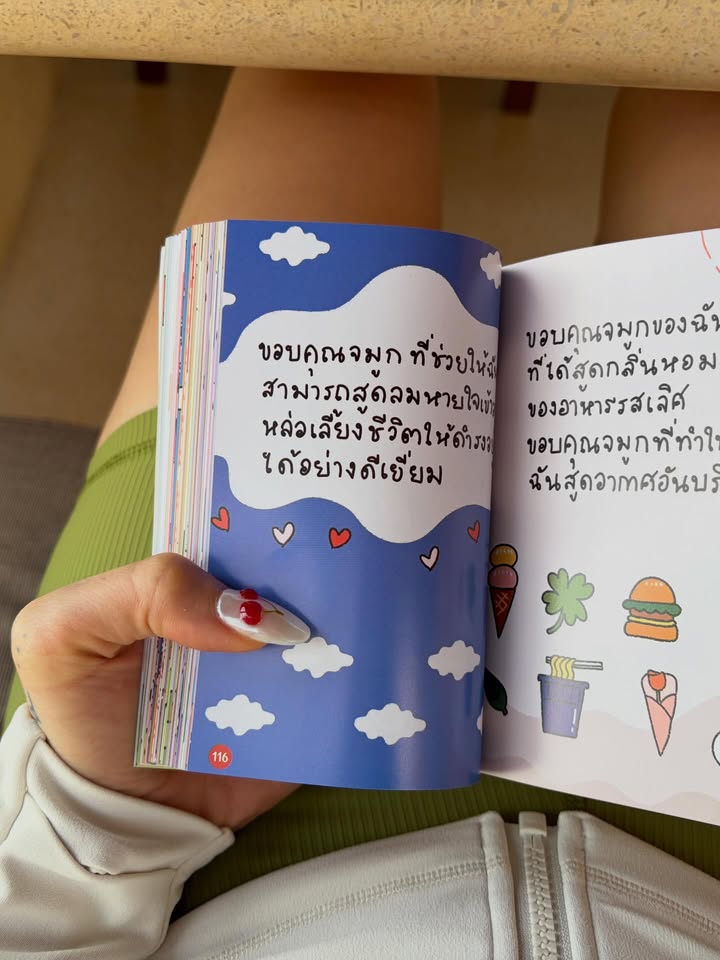 ขอบคุณจมูก ที่ช่วยให้
สามารถสูดลมหายใจ
หล่อเลี้ยงชีวิตให้
ได้อย่างดีเยี่ยม
116
ขอบคุณจมูกของ
ที่ได้สูดกลิ่นหอม
ของอาหารรสเลิศ
ขอบคุณจมูกที่
ฉันสูดอากาศอัน